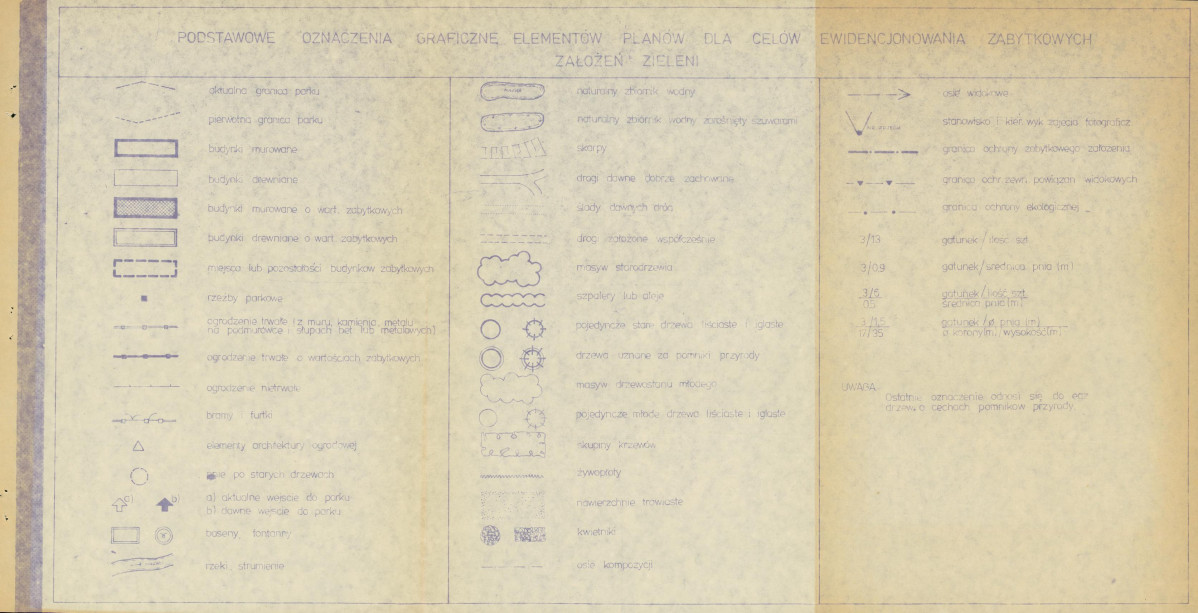 PODSTAWOWE OZNACZENIA GRAFICZNE ELEMENTÓW PLANÓW DLA CELÓW EWIDENCJONOWANIA ZABYTKOWYCH
ZAŁOŻEŃ ZIELENI
aktualna granica parku
pierwotna granica parku
budynki murowane
budynki drewniane
budynki murowane o wart. zabytkowych
budynki drewniane o wart. zabytkowych
miejsca lub pozostałości budynków zabytkowych
rzeźby parkowe
ogrodzenie trwałe (z muru, kamienia, metalu
na podmurówce i słupach bet. lub metalowych)
ogrodzenie trwałe o wartościach zabytkowych
ogrodzenie nietrwałe
bramy furtki
elementy architektury ogrodowej
pnie po starych drzewach
a) b)
a) aktualne wejście do parku
b) dawne wejście do parku
baseny, fontanny
rzeki, strumienie
naturalny zbiornik wodny
naturalny zbiornik wodny zarośnięty szuwarami
skarpy
drogi dawne dobrze zachowane
ślady dawnych dróg
drogi założone współcześnie
masyw starodrzewia
szpalery lub aleje
pojedyncze star. drzewa liściaste i iglaste
drzewa uznane za pomniki przyrody
masyw drzewostanu młodego
pojedyncze młode drzewa liściaste i iglaste
skupiny krzewów
żywopłoty
nawierzchnie trawiaste
kwietniki
osie kompozycji
osie widokowe
stanowisko i kier. wyk. zdjęcia fotograficz.
granica ochrony zabytkowego założenia
granica ochr. zewn. powiązań widokowych
granica ochrony ekologicznej
3/13 gatunek / ilość szt.
3/0,9 gatunek / średnica pnia (m)
3/5 gatunek / ilość szt.
0,5 średnica pnia (m)
3/1,5 gatunek / ø pnia (m)
17/35 ø korony(m) / wysokość(m)
UWAGA
Ostatnie oznaczenie odnosi się do egz.
drzew o cechach pomników przyrody